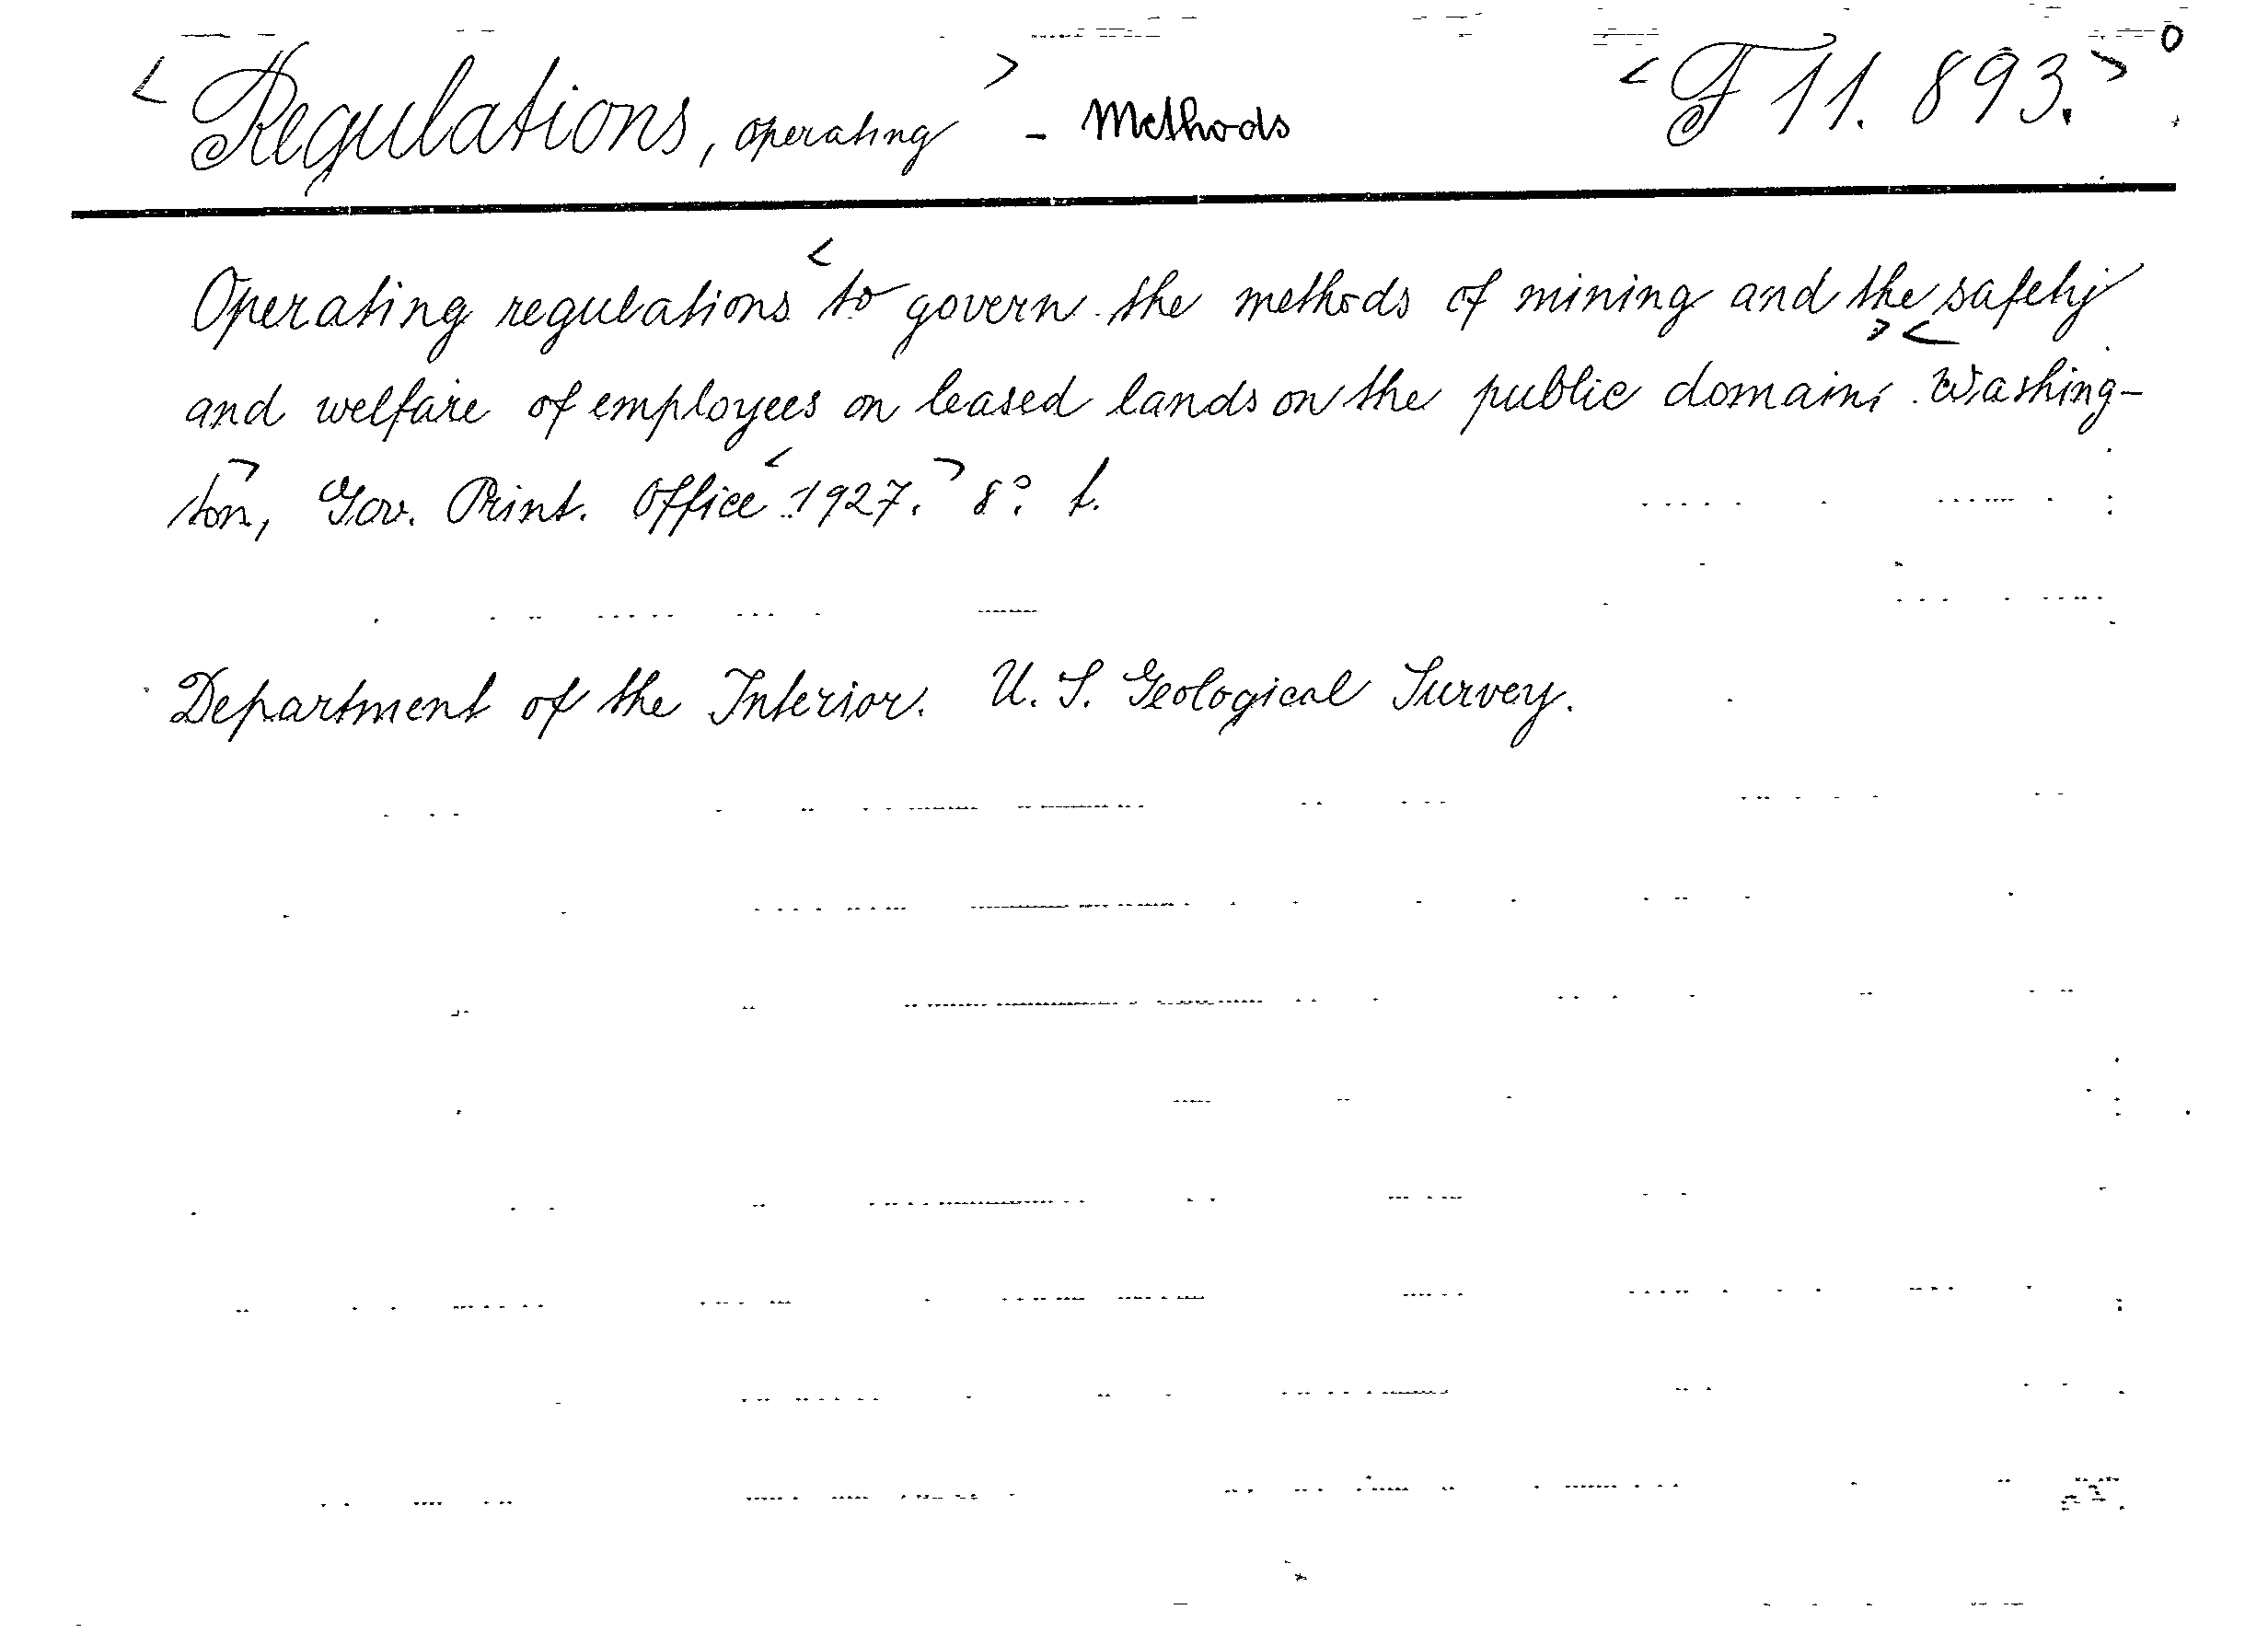 <Regulations, operating> - Methods <F 11. 893.> o
Operating regulations <to govern the methods of mining and the safety
and welfare of employees on leased lands on the public domain> <. Washing-
ton>, Gov. Print. Office <1927.> 8°. t.
Department of the Interior. U. S. Geological Survey.